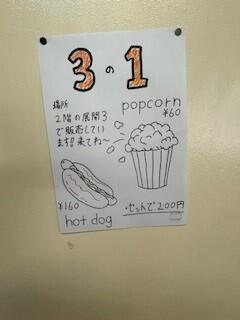 3の1
場所
2階の展開3
で販売してい
ます!!来てね〜
popcorn
¥60
¥160
hot dog
・セットで200円